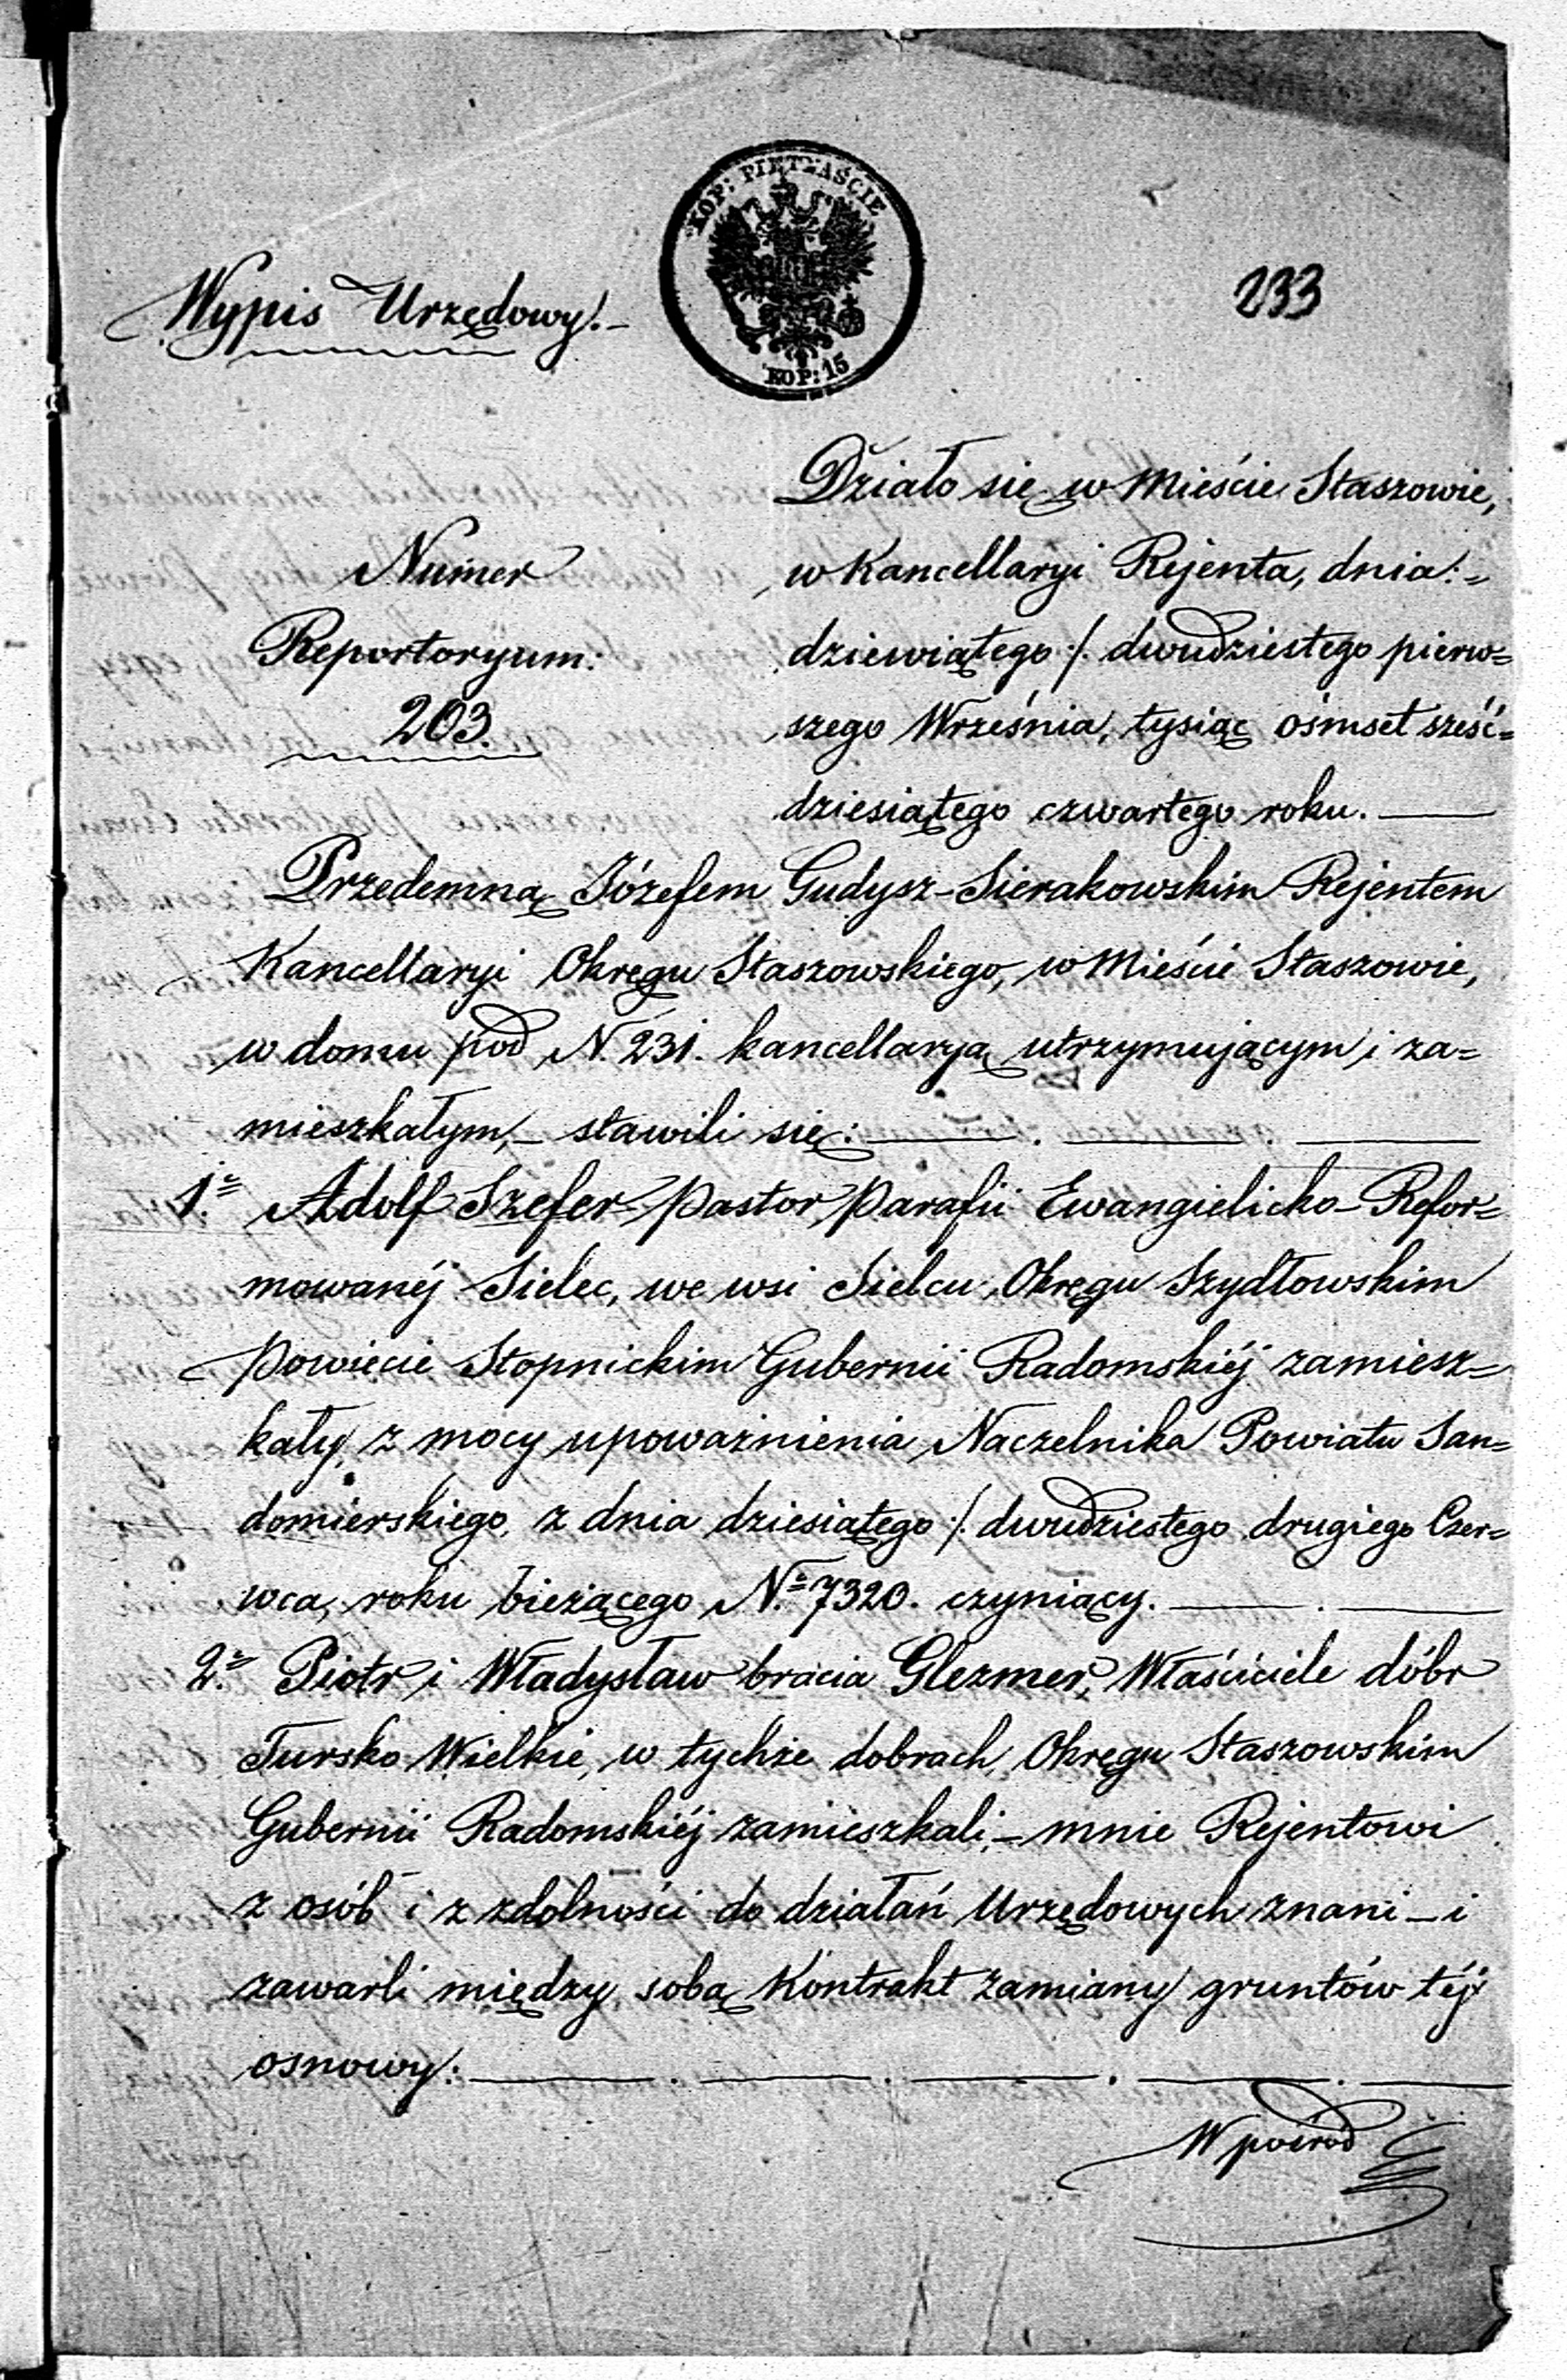 KOP: PIĘTNAŚCIE
KOP: 15
Wypis Urzędowy.–
233
Numer
Reportoryum:
203.
Działo się w Mieście Staszowie,
w Kancellaryi Rejenta, dnia:=
dziewiątego /. dwudziestego pierw=
szego Września, tysiąc ośmset sześć=
dziesiątego czwartego roku. —
Przedemną Józefem Gudysz-Sierakowskim Rejentem
Kancellaryi Okręgu Staszowskiego, w Mieście Staszowie,
w domu pod N. 231. kancellaryą utrzymującym i za=
mieszkałym, – stawili się: — . — . —
1. Adolf Szefer Pastor Parafii Ewangielicko-Refor=
mowanéj Sielec, we wsi Sielcu, Okręgu Szydłowskim
Powiecie Stopnickim Gubernii Radomskiéj zamiesz=
kały, z mocy upoważnienia Naczelnika Powiatu San=
domierskiego, z dnia dziesiątego /. dwudziestego drugiego Czer=
wca, roku bieżącego N. 7320. czyniący. — . —
2. Piotr i Władysław bracia Glezmer, Właściciele dóbr
Tursko Wielkie, w tychże dobrach, Okręgu Staszowskim
Gubernii Radomskiéj zamieszkali, – mnie Rejentowi
z osób i z zdolności do działań Urzędowych znani – i
zawarli między sobą Kontrakt zamiany gruntów téj
osnowy: — . — . — . — . —
W pośród